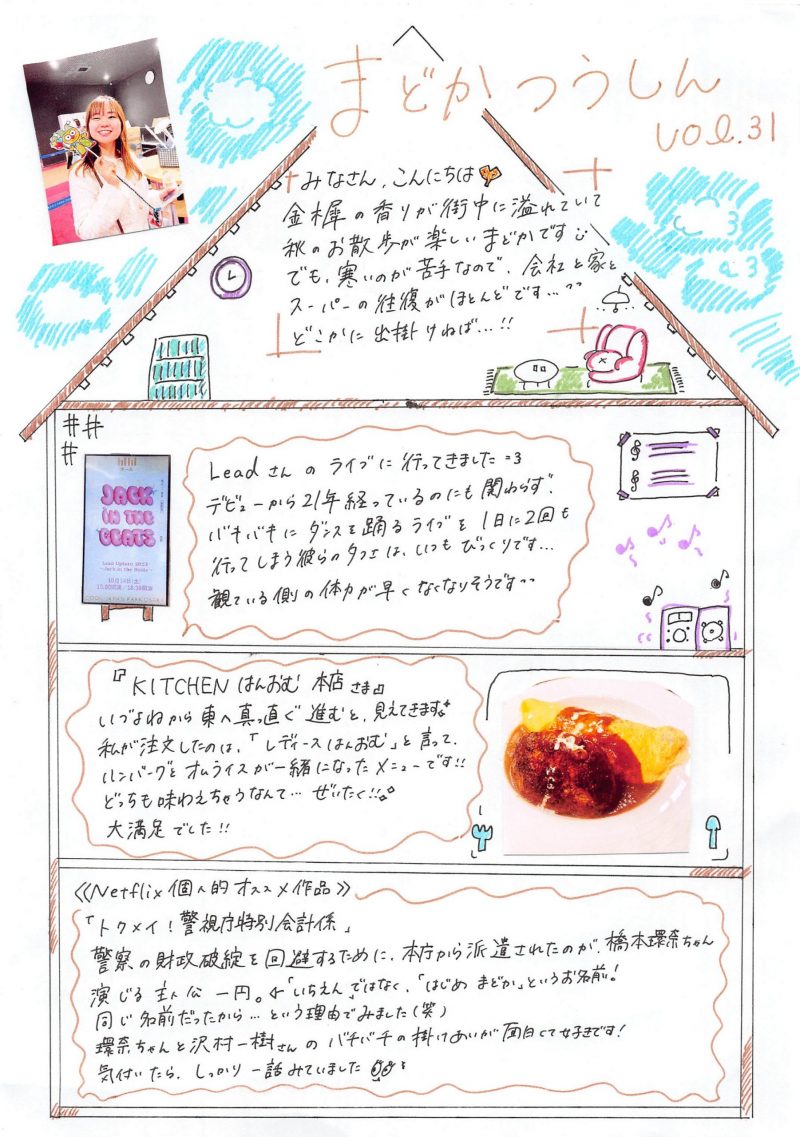 まどかつうしん
vol.31
みなさん、こんにちは
金木犀の香りが街中に溢れていて
秋のお散歩が楽しいまどかです
でも、寒いのが苦手なので、会社と家と
スーパーの往復がほとんどです…
どこかに出掛けねば…!!
Leadさんのライブに行ってきました=3
デビューから21年経っているのにも関わらず、
バキバキにダンスを踊るライブを1日に2回も
行ってしまう彼らのタフさは、いつもびっくりです…
観ている側の体力が早くなくなりそうです
ホール
JACK
IN THE
BEATS
Lead Upturn 2023
~Jack in the Beats~
10月14日(土)
15:00開演/18:30開演
COOL JAPAN PARK OSAKA
『KITCHEN はんおむ 本店さま』
いづよねから東へ真っ直ぐ進むと、見えてきます。
私が注文したのは、「レディースはんおむ」と言って、
ハンバーグとオムライスが一緒になったメニューです!!
どっちも味わえちゃうなんて…ぜいたく!!
大満足でした!!
≪Netflix個人的オススメ作品≫
「トクメイ!警視庁特別会計係」
警察の財政破綻を回避するために、本庁から派遣されたのが、橋本環奈ちゃん
演じる主人公 一円。←「いちえん」ではなく、「はじめ まどか」というお名前!
同じ名前だったから…という理由でみました(笑)
環奈ちゃんと沢村一樹さんのバチバチの掛けあいが面白くて好きです!
気付いたら、しっかり一話みていました